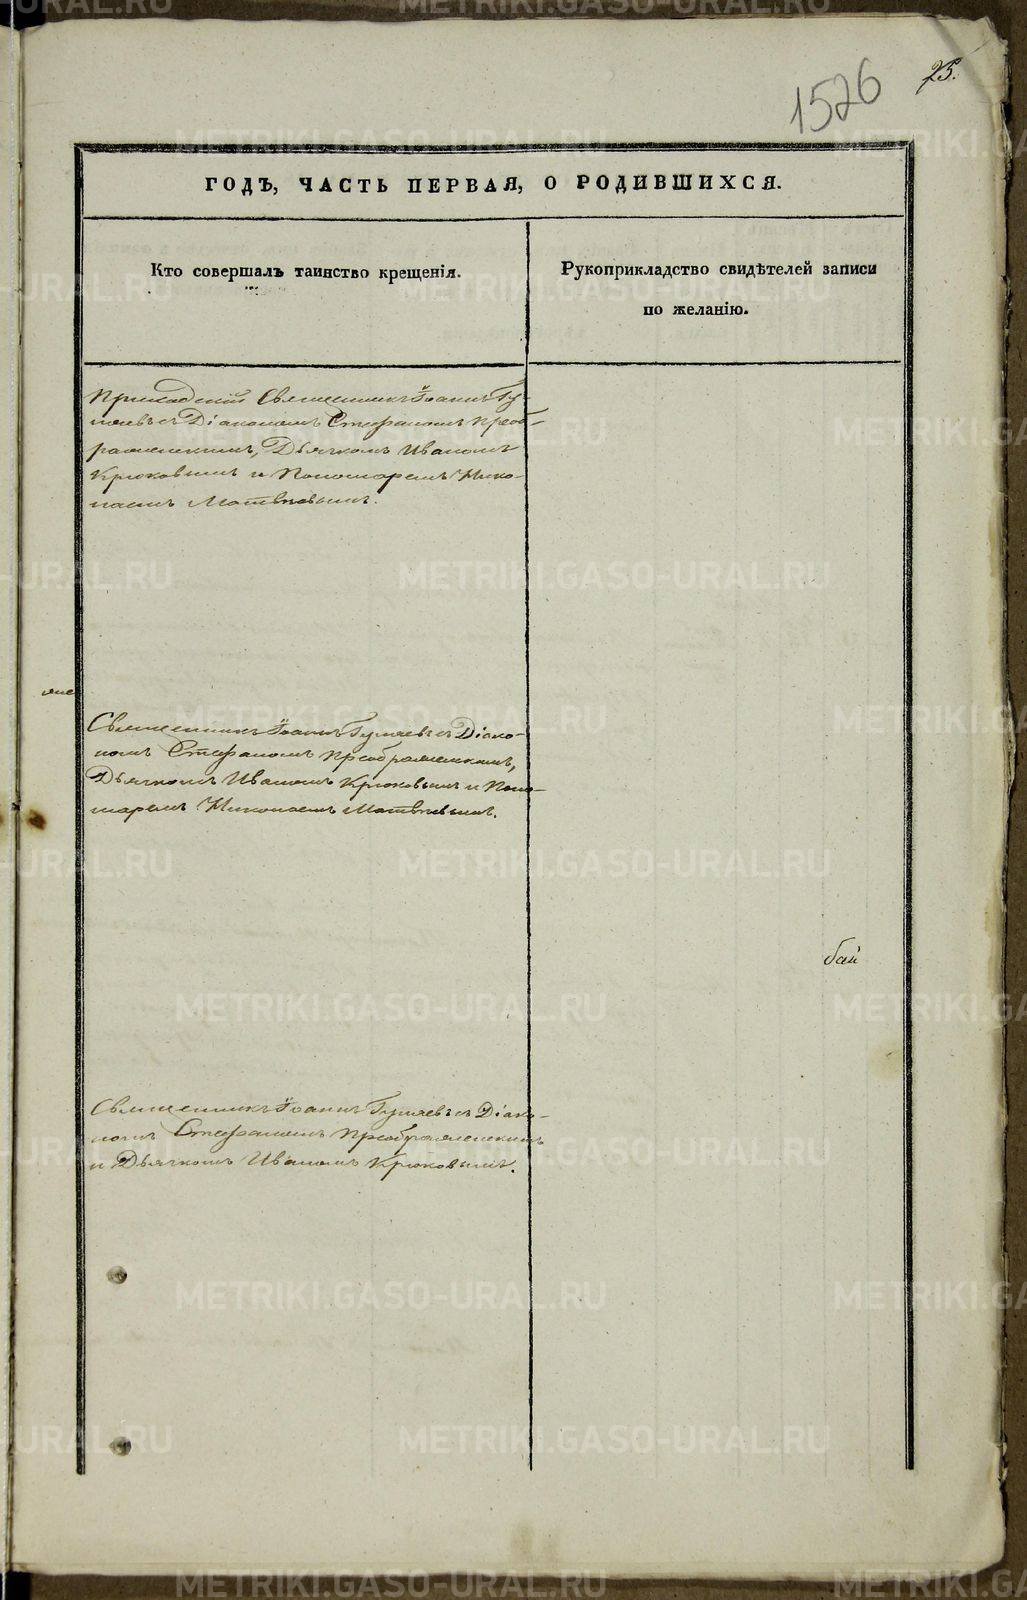 1526
25.
ГОДЪ, ЧАСТЬ ПЕРВАЯ, О РОДИВШИХСЯ.
Кто совершалъ таинство крещенія.
Рукоприкладство свидѣтелей записи
по желанію.
Приходскій Священникъ Іоаннъ Гу-
ляевъ съ Діакономъ Стефаномъ Преоб-
раженскимъ, Дьячкомъ Иваномъ
Крюковымъ и Пономаремъ Нико-
лаемъ Матвѣевымъ.
Священникъ Іоаннъ Гуляевъ съ Діако-
номъ Стефаномъ Преображенскимъ,
Дьячкомъ Иваномъ Крюковымъ и Поно-
маремъ Николаемъ Матвѣевымъ.
бай
Священникъ Іоаннъ Гуляевъ съ Діако-
номъ Стефаномъ Преображенскимъ
и Дьячкомъ Иваномъ Крюковымъ.
METRIKI.GASO-URAL.RU